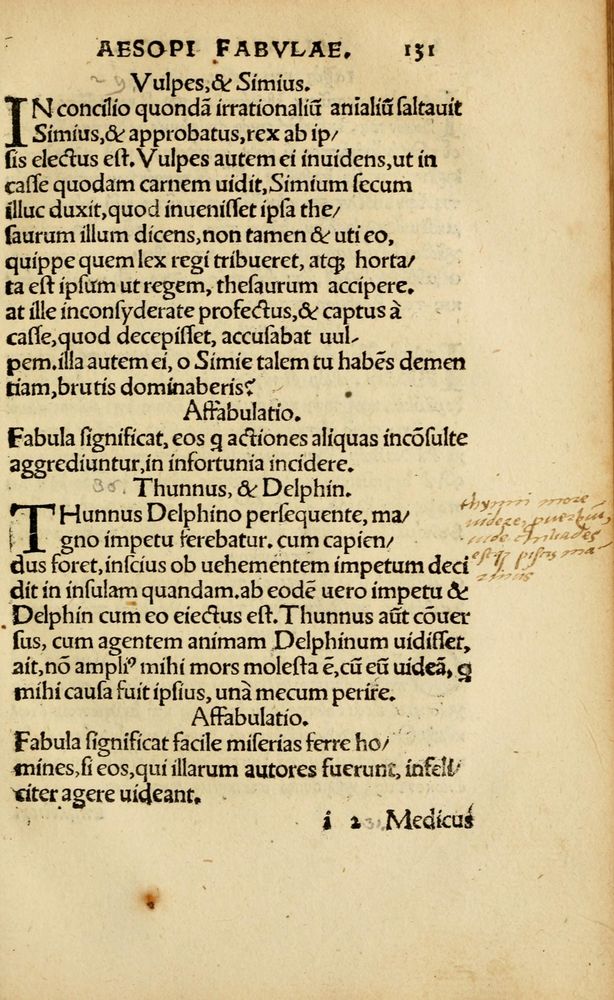 AESOPI FABVLAE. 131
Vulpes, & Simius.
IN concilio quondā irrationaliū anialiū saltauit
Simius, & approbatus, rex ab ip/
sis electus est. Vulpes autem ei inuidens, ut in
casse quodam carnem uidit, Simium secum
illuc duxit, quod inuenisset ipsa the/
saurum illum dicens, non tamen & uti eo,
quippe quem lex regi tribueret, atqꝫ horta/
ta est ipsum ut regem, thesaurum accipere.
at ille inconsyderate profectus, & captus à
casse, quod decepisset, accusabat uul-
pem. illa autem ei, o Simie talem tu habēs demen
tiam, brutis dominaberis?
Affabulatio.
Fabula significat, eos ꝗ actiones aliquas incōsulte
aggrediuntur, in infortunia incidere.
36. Thunnus, & Delphin.
THunnus Delphino persequente, ma/
gno impetu ferebatur. cum capien/
dus foret, inscius ob uehementem impetum deci
dit in insulam quandam. ab eodē uero impetu &
Delphin cum eo eiectus est. Thunnus aūt cōuer
sus, cum agentem animam Delphinum uidisset,
ait, nō ampliꝰ mihi mors molesta ē, cū eū uideā, ꝗ
mihi causa fuit ipsius, unà mecum perire.
thynni more
Affabulatio.
Fabula significat facile miserias ferre ho/
mines, si eos, qui illarum autores fuerunt, infeli/
citer agere uideant.
i 2 Medicus